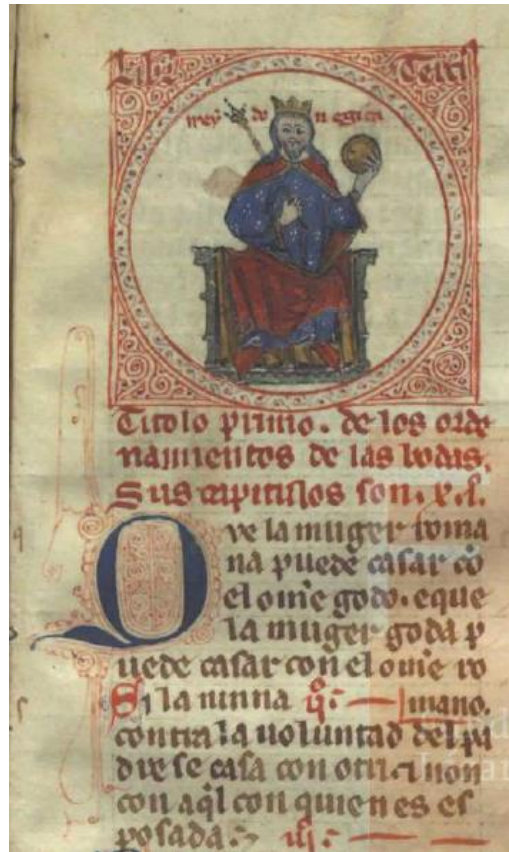 Liber Tercius
rey do n egica
Titolo primo. de los orde
namientos de las bodas.
Sus capitulos son. x. i.
Que la muger roma
na puede casar cõ
el om̃e godo. e que
la muger goda p
uede casar con el om̃e ro
Si la ninna ij. mano.
contra la uoluntad del pa
dre se casa con otri. ⁊ non
con aq̃l con quien es es
posada. iij.